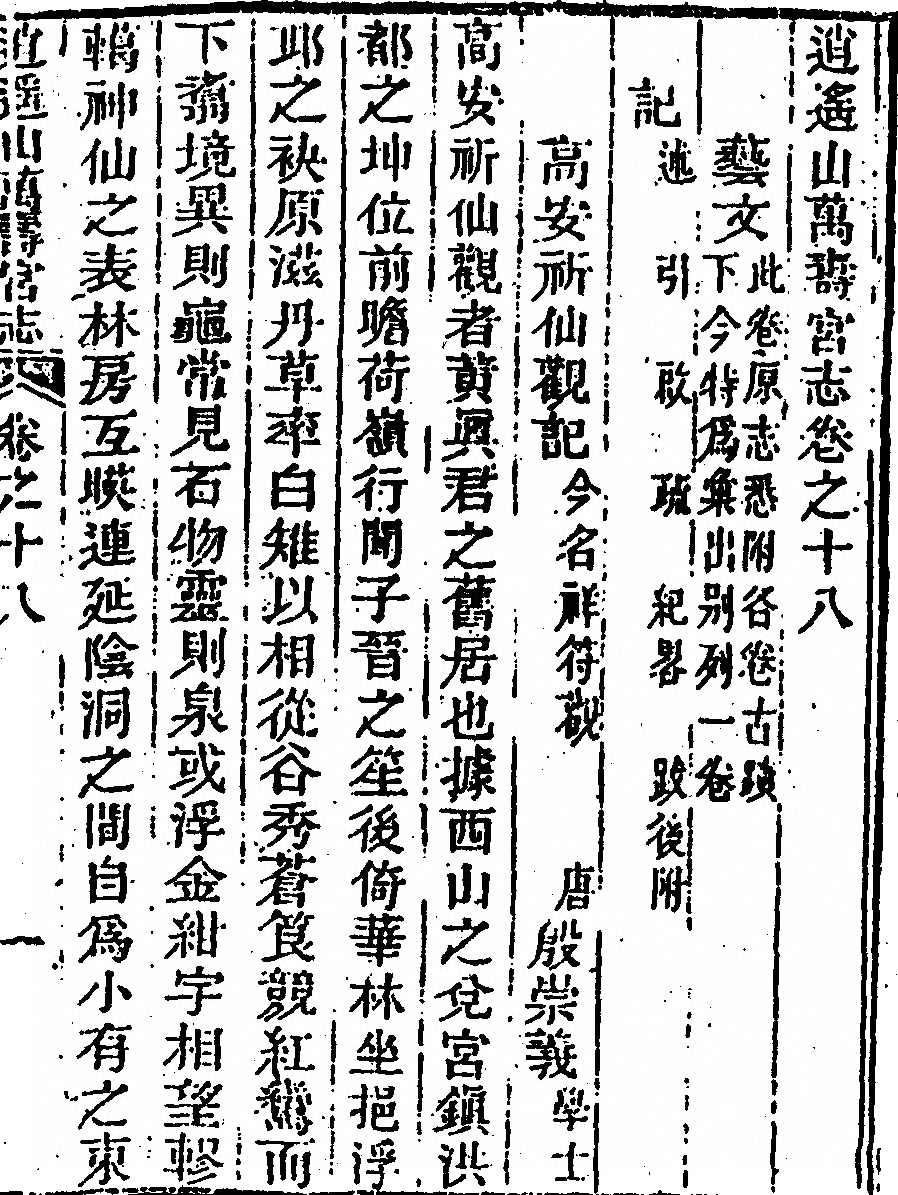 逍遙山萬壽宮志卷之十八
藝文此卷原志悉附各卷古蹟下今特爲彙出别列一卷
記述 引 啟 疏 紀畧 跋後附
高安祈仙觀記今名祥符觀 唐殷崇義學士
高安祈仙觀者黄興君之舊居也據西山之兌宮鎮洪
都之坤位前瞻荷嶺行聞子晉之笙後倚華林坐挹浮
邱之袂原滋丹草率白雉以相從谷秀蒼筤競紅鸞而
下翥境異則龜常見石物靈則泉或浮金紺宇相望轇
轕神仙之表林房互暎連延陰洞之間自爲小有之東
逍遙山萬壽宮志 卷之十八 一